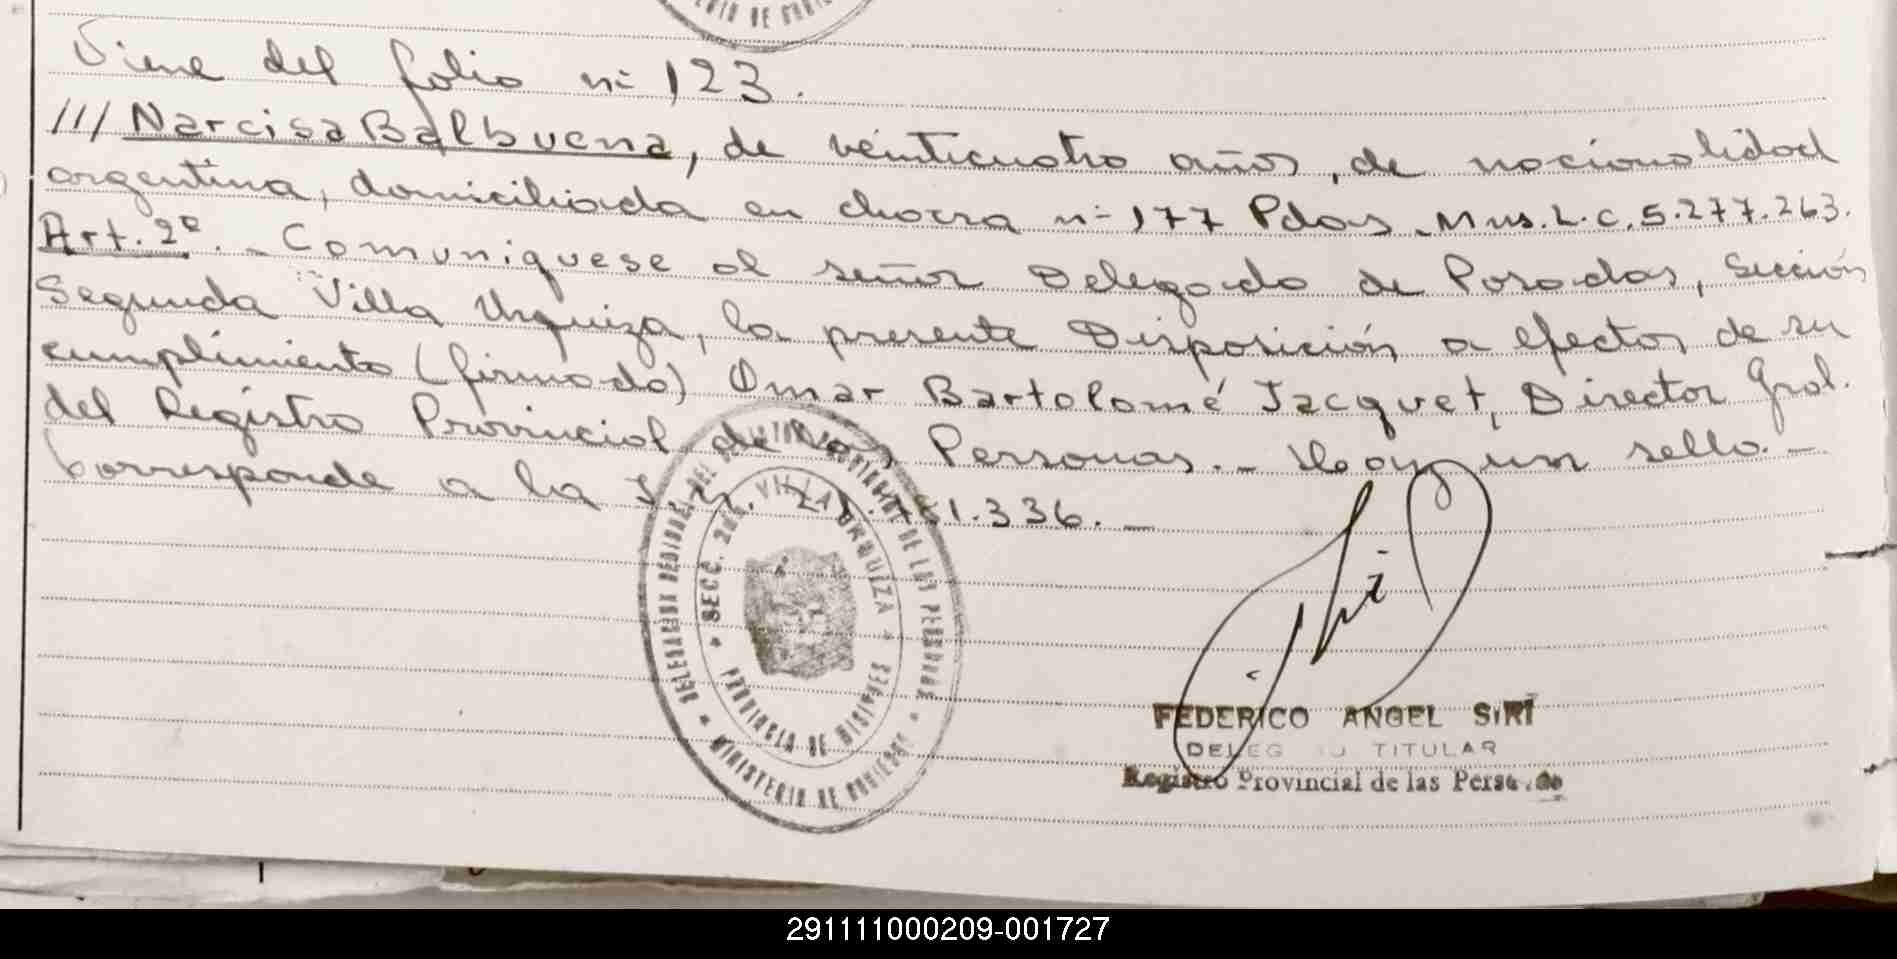 MINISTERIO DE GOBIERNO
Viene del folio nº 123.
/// Narcisa Balbuena, de veinticuatro años, de nacionalidad
argentina, domiciliada en chacra nº 177 Pdas. Mns. L.C. 5.277.263.
Art. 2º. - Comuniquese al señor Delegado de Posadas, Sección
Segunda Villa Urquiza, la presente Disposición a efectos de su
cumplimiento (firmado) Omar Bartolomé Jacquet, Director Gral.
del Registro Provincial de las Personas. - Hay un sello. -
Corresponde a la .336. -
DELEGACION REGIONAL DEL DE LAS PERSONAS
SECC. 2DA. VILLA URQUIZA
PROVINCIA DE MISIONES
MINISTERIO DE GOBIERNO
FEDERICO ANGEL SIRI
DELEG O TITULAR
Registro Provincial de las Perso as
291111000209-001727